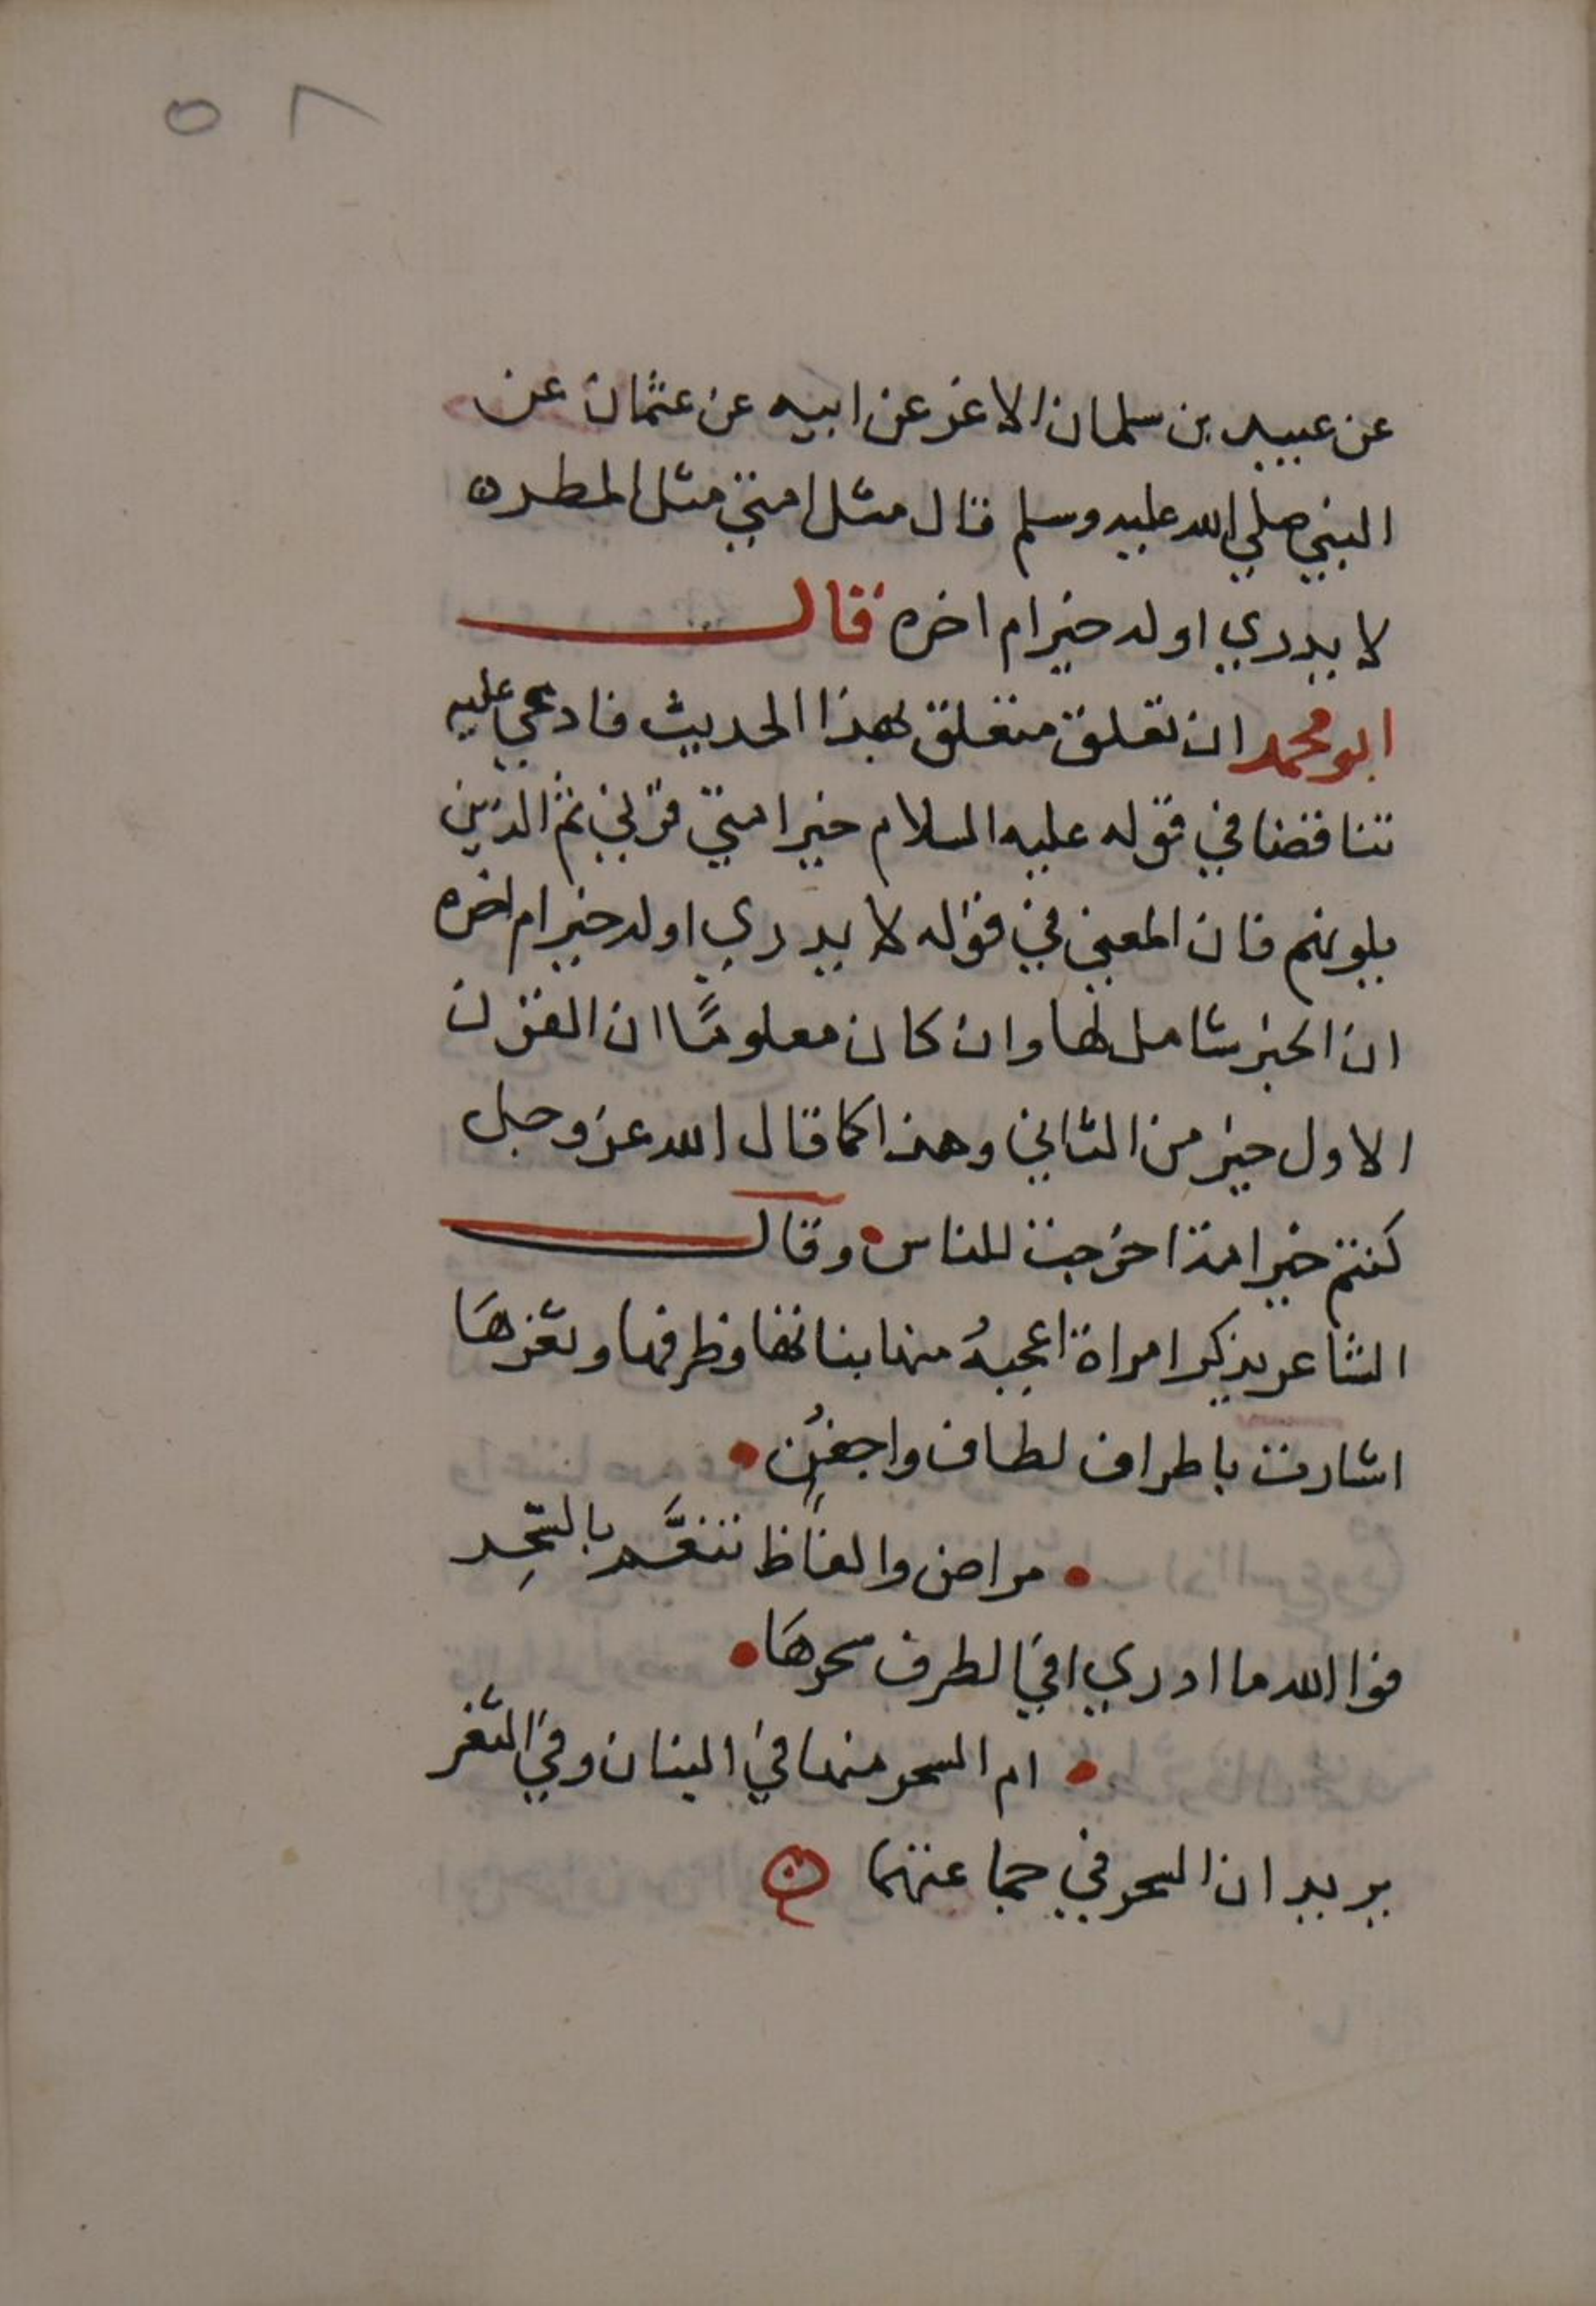 ٥٨
عن عبيد بن سلمان الاغر عن ابيه عن عثمان عن
النبي صلي الله عليه وسلم قال مثل امتي مثل المطر ه
لا يدري اوله خير ام اخره قال
ابو محمد ان تعلق متعلق بهذا الحديث فادعي عليه
تناقضا في قوله عليه السلام خير امتي قرني ثم الذين
يلونهم فان المعني في قوله لا يدري اوله خير ام اخره
ان الخير شامل لها وان كان معلومًا ان القرن
الاول خير من الثاني وهذا كما قال الله عز وجل
كنتم خير امة اخرجت للناس وقال
الشاعر يذكر امراة اعجبهُ منها بنانها وظرفها وثغرهَا
اشارت باطراف لطاف واجفُنٍ
مراض والفاظ تنغَّم بالسِّحِر
فوا الله ما ادري افي الطرف سحرهَا
ام السحر منها في البنان وفي الثغر
يريد ان السحر في جماعتهما